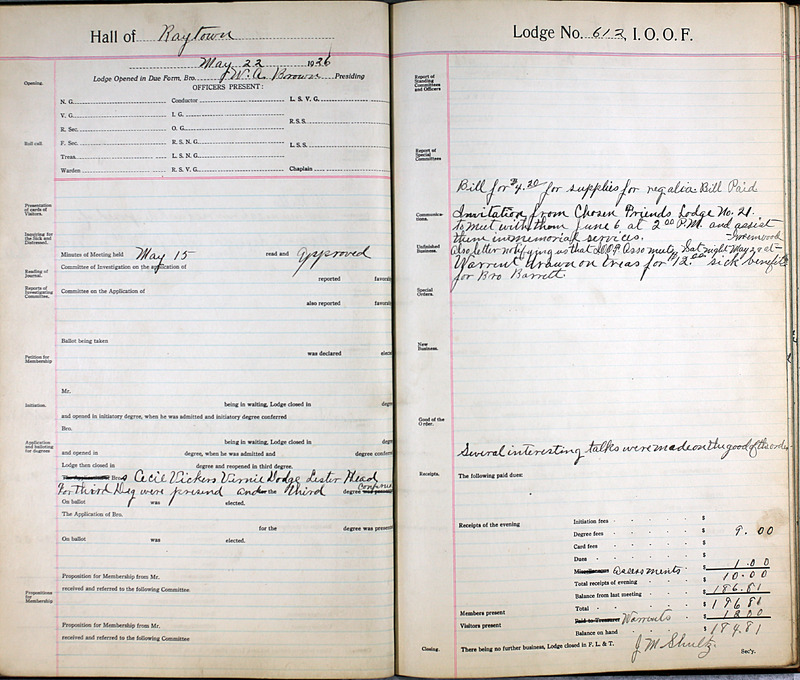 Hall of Raytown
May 22 1926
Lodge Opened in Due Form, Bro. W. A. Brown Presiding
Opening.
OFFICERS PRESENT:
N. G. Conductor L. S. V. G.
V. G. I. G.
R. S. S.
R. Sec. O. G.
Roll call.
F. Sec. R. S. N. G. L. S. S.
Treas. L. S. N. G.
Warden R. S. V. G. Chaplain
Presentation of cards of Visitors.
Inquiring for the Sick and Distressed.
Minutes of Meeting held May 15 read and approved
Reading of Journal.
Committee of Investigation on the application of
reported favora
Reports of Investigating Committee.
Committee on the Application of
also reported favora
Ballot being taken
was declared elec
Petition for Membership
Mr.
Initiation.
being in waiting, Lodge closed in degr
and opened in initiatory degree, when he was admitted and initiatory degree conferred
Bro.
Application and balloting for degrees
being in waiting, Lodge closed in degr
and opened in degree, when he was admitted and degree confer
Lodge then closed in degree and reopened in third degree.
The Application of Bros Cecil Vickers Virnie Dodge Lester Head
For third Deg were present and for the third degree was presen
On ballot was elected.
The Application of Bro.
for the degree was presen
On ballot was elected.
Propositions for Membership
Proposition for Membership from Mr.
received and referred to the following Committee
Proposition for Membership from Mr.
received and referred to the following Committee
Lodge No. 612, I. O. O. F.
Report of Standing Committees and Officers
Report of Special Committees
Bill for $4.20 for supplies for regalia Bill Paid
Communications.
Invitation from Chosen Friends Lodge No. 21.
to meet with them June 6 at 2 00 P.M. and assist
them in memorial services.
Unfinished Business.
Also letter notifying us that I.O.O.F. Asso meets Sat night May 29 at Greenwood
Warrent drawn on treas for $12.00 sick benefit
for Bro Barrett.
Special Orders.
New Business.
Good of the Order.
Several interesting talks were made on the good of the order
Receipts.
The following paid dues:
Receipts of the evening
Initiation fees $
Degree fees $ 9.00
Card fees $
Dues $
Miscellaneous assessments $ 1.00
Total receipts of evening $ 10.00
Balance from last meeting $ 186.81
Total $ 196.81
Members present
Paid to Treasurer Warrents $ 12.00
Visitors present
Balance on hand $ 184.81
Closing.
There being no further business, Lodge closed in F. L. & T. J M Shultz Sec'y.